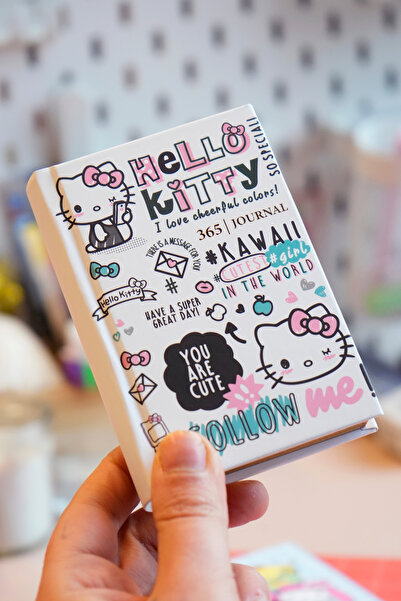 HELLO
KITTY
SO SPECIAL!
I love cheerful colors!
365 | JOURNAL
THERE IS A MESSAGE FOR YOU
#KAWAII
CUTEST #girl
IN THE WORLD
Hello Kitty
#
HAVE A SUPER
GREAT DAY!
YOU
ARE
CUTE
FOLLOW me!